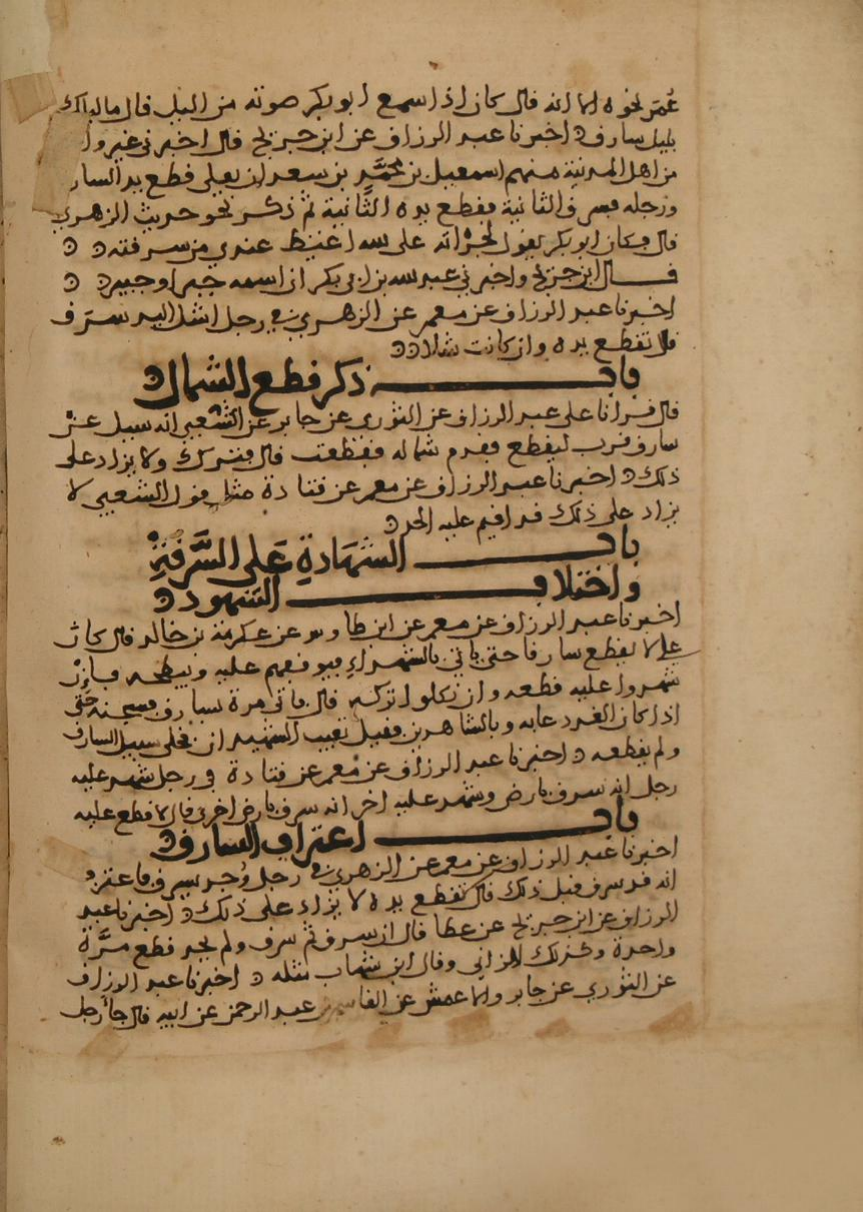 عمر نحوه الا انه قال كان اذا سمع ابو بكر صوته من الليل قال ما ليلك
بليل سارق اخبرنا عبد الرزاق عن ابن جريج قال اخبرني غير واحد
من اهل المدينة منهم اسمعيل بن محمد بن سعد ان يعلى قطع يد السارق
ورجله فسرق الثانية فقطع يده الثانية ثم ذكر نحو حديث الزهري
قال فكان ابو بكر يقول لجرأته على الله اغيظ عندي من سرقته
قال ابن جريج واخبرني عبد الله بن ابي بكر ان اسمه جبر او جبير
اخبرنا عبد الرزاق عن معمر عن الزهري في رجل اشل اليد سرق
قال تقطع يده وان كانت شلاء
باب ذكر قطع الشمال
قال قرانا على عبد الرزاق عن الثوري عن جابر عن الشعبي انه سيل عن
سارق قرب ليقطع فقدم شماله فقطعت قال يترك ولا يزاد على
ذلك اخبرنا عبد الرزاق عن معمر عن قتادة مثل قول الشعبي لا
يزاد على ذلك قد اقيم عليه الحد
باب الشهادة على السرقة
واختلاف الشهود
اخبرنا عبد الرزاق عن معمر عن ابن طاوس عن عكرمة بن خالد قال كان
علي لا يقطع سارقا حتى ياتي بالشهداء فيوقفهم عليه ويبطحه فإن
شهدوا عليه قطعه وان نكلوا تركه قال فاتي مرة بسارق فسجنه حتى
اذا كان الغد دعا به وبالشاهدين فقيل تغيب الشهيدان فخلى سبيل السارق
ولم يقطعه اخبرنا عبد الرزاق عن معمر عن قتادة في رجل شهد عليه
رجل انه سرق بارض وشهد عليه اخر انه سرق بارض اخرى قال لا قطع عليه
باب اعتراف السارق
اخبرنا عبد الرزاق عن معمر عن الزهري في رجل وجد يسرق فاعترف
انه قد سرق قبل ذلك قال تقطع يده لا يزاد على ذلك اخبرنا عبد
الرزاق عن ابن جريج عن عطا قال ان سرق ثم سرق ولم يحد قطع مرة
واحدة وكذلك الزاني وقال ابن شهاب مثله اخبرنا عبد الرزاق
عن الثوري عن جابر والاعمش عن القاسم بن عبد الرحمن عن ابيه قال جاء رجل